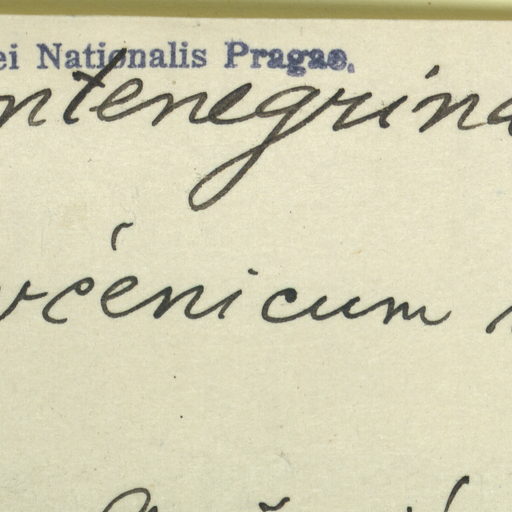 ei Nationalis Pragae.
ntenegrina
včenicum